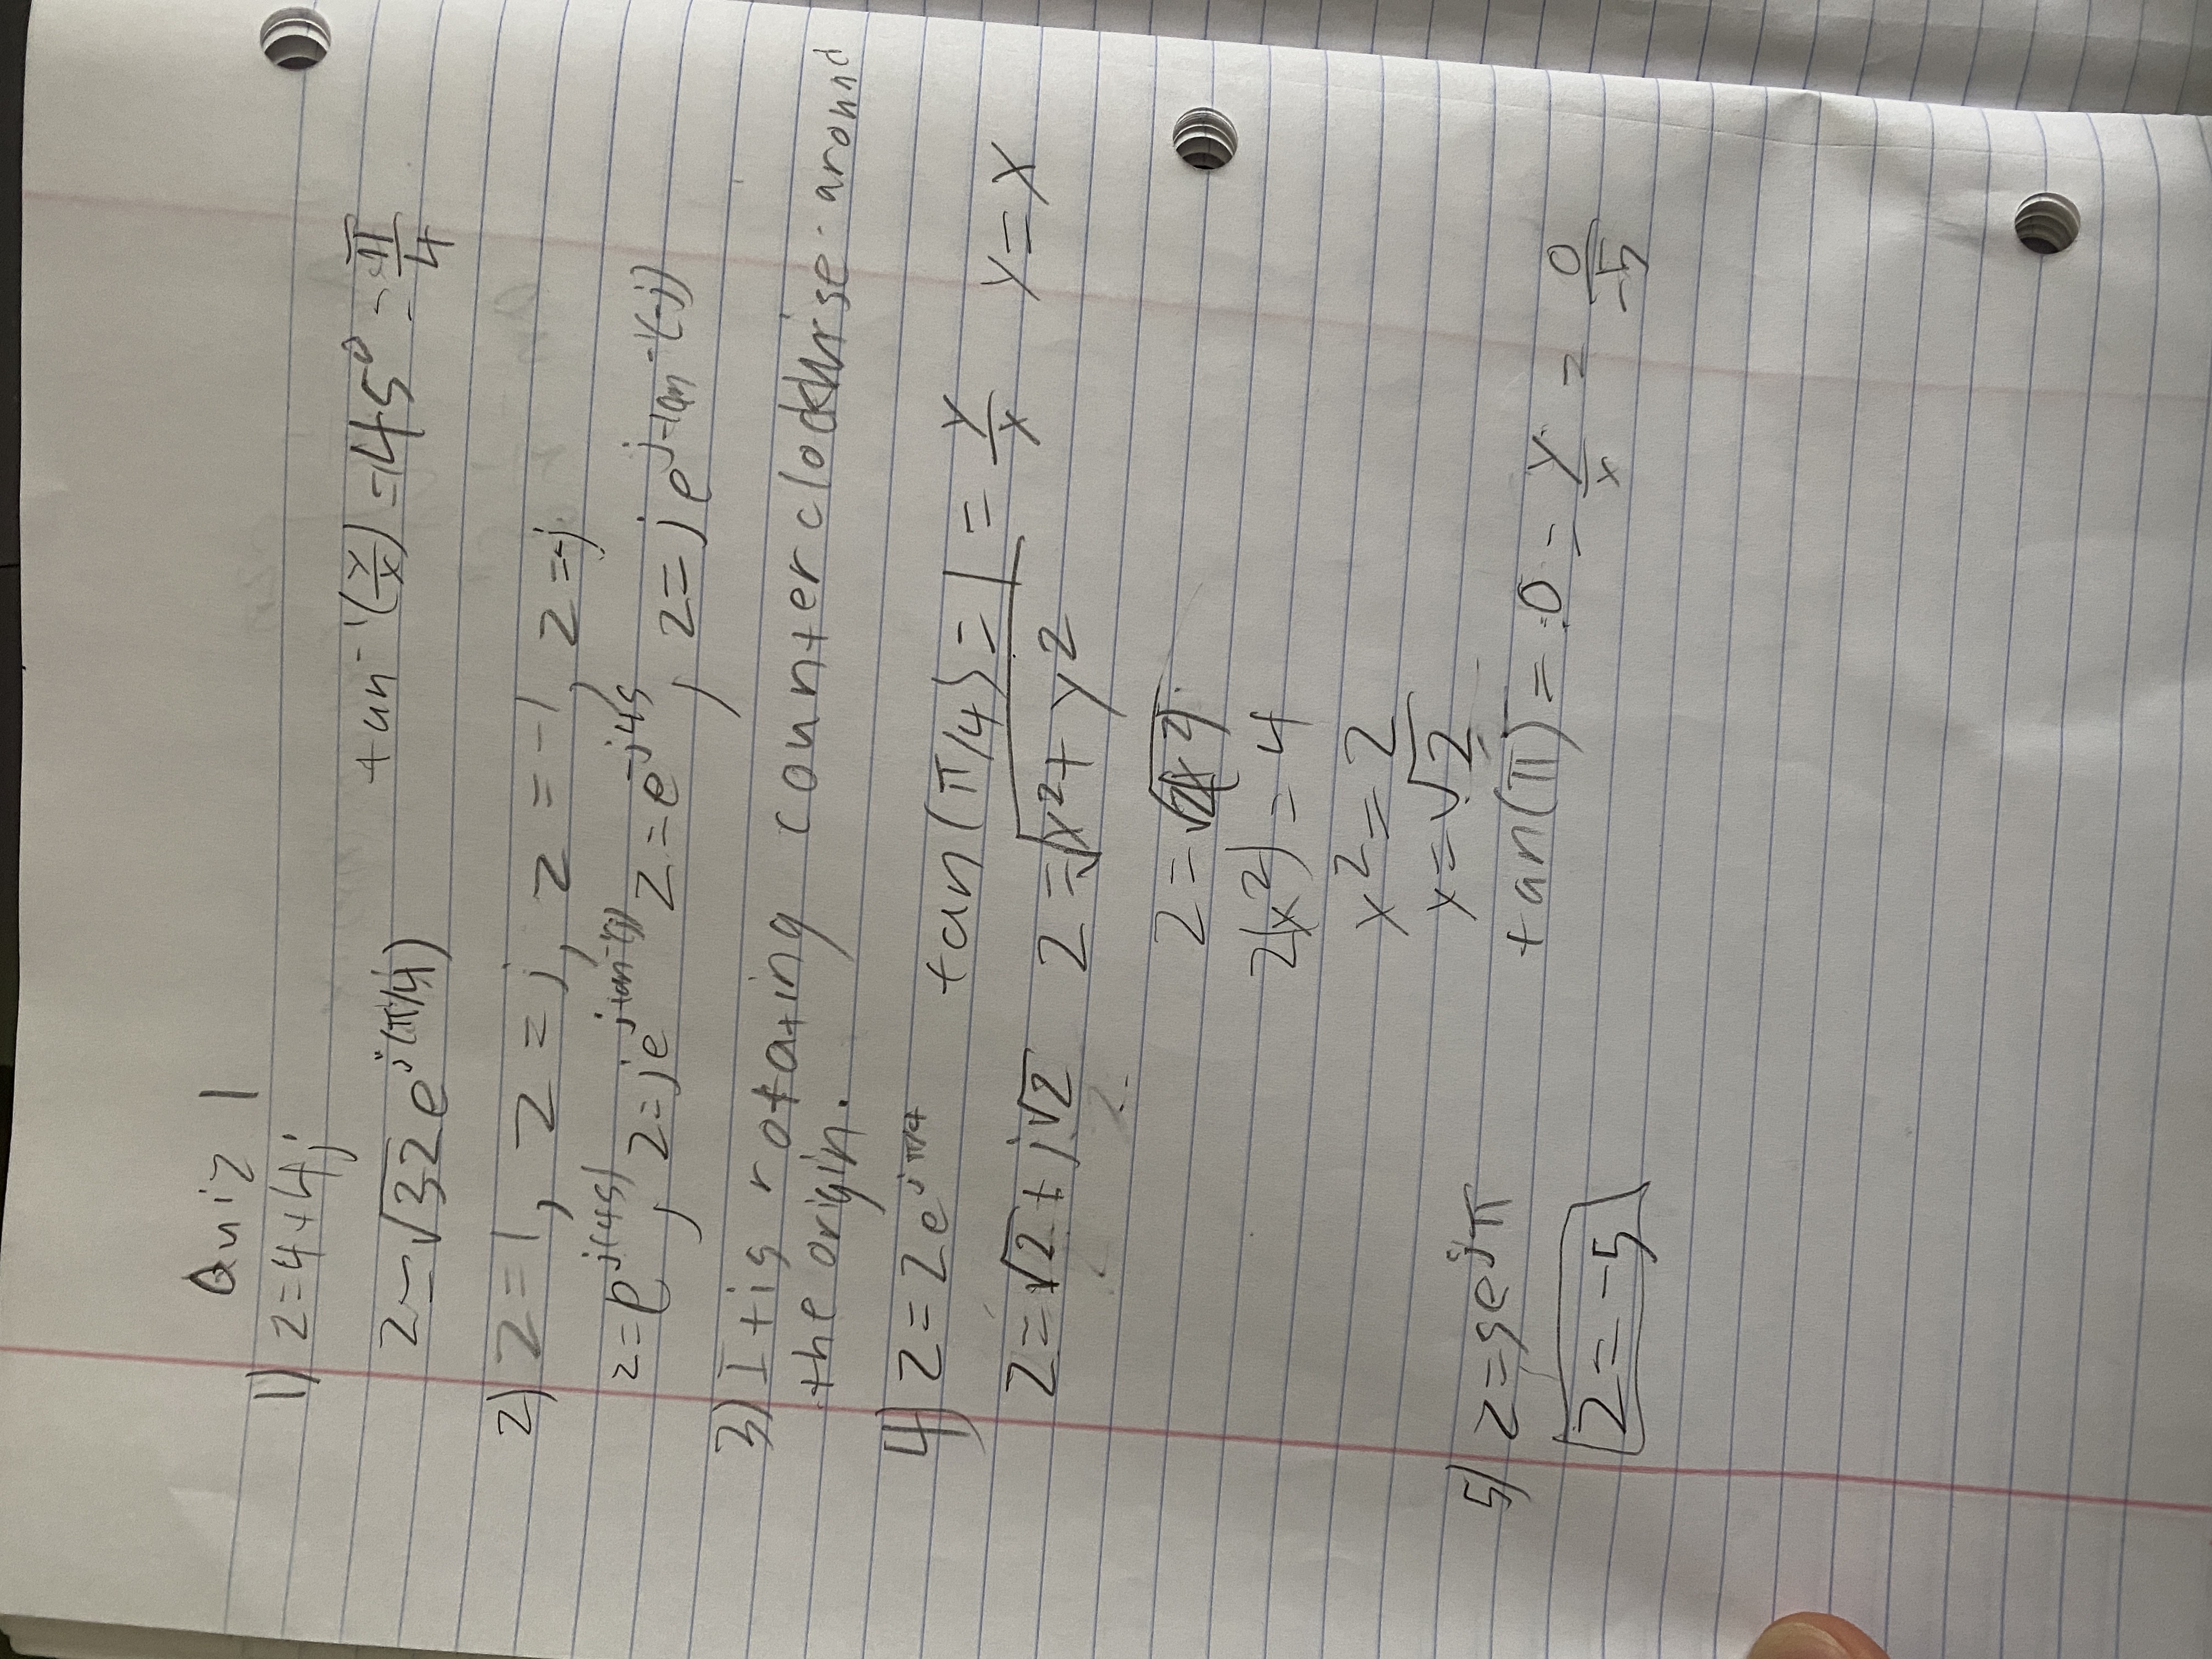 Quiz 1
1) z=4+4j
z=√32 e^j(π/4) tan^-1(y/x) = 45° = π/4
2) z=1, z=j, z=-1, z=-j
z=e^j(45), z=je^jtan^-1(j) z=e^-j45, z=je^jtan^-1(-j)
3) It is rotating counterclockwise around
the origin.
4) z=2e^jπ/4 tan(π/4)=1=y/x y=x
z=√2+j√2 2=√x²+y²
2=√2(x²)
2(x²)=4
x²=2
x=√2
5) z=5e^jπ tan(π)=0=y/x=0/-5
z=-5